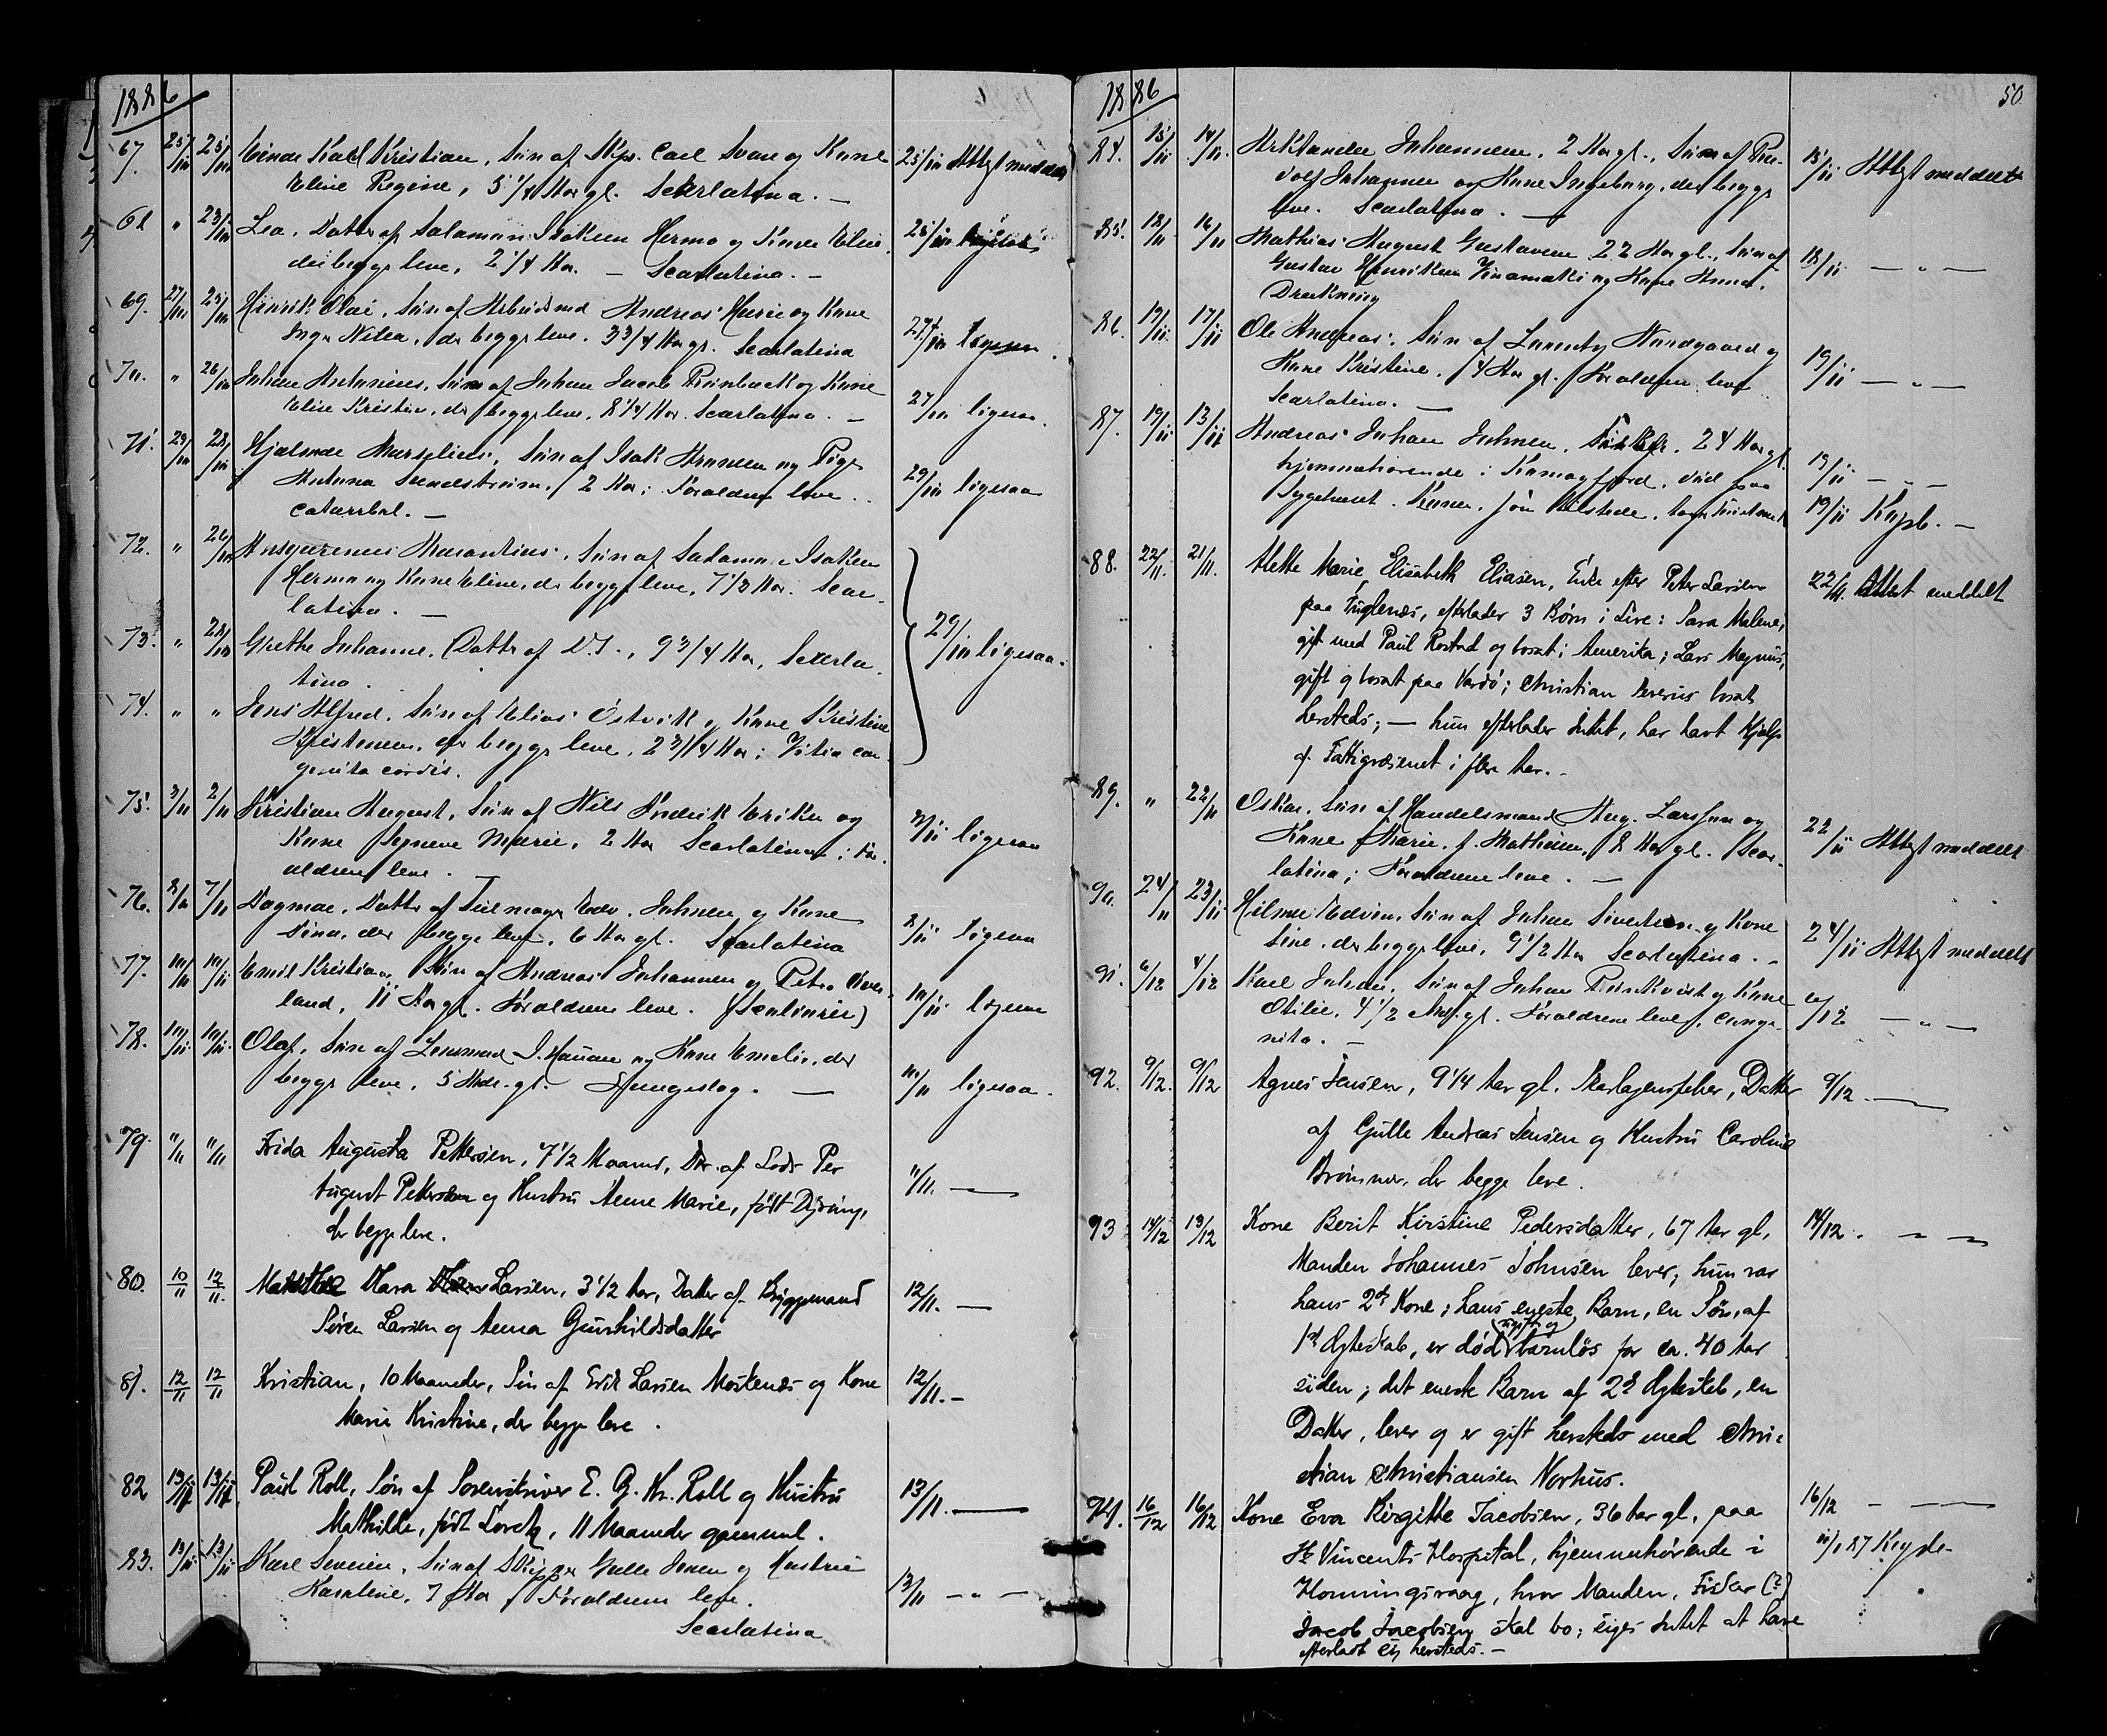 1886
67. 25/10 25/10 Einar Karl Kristian, Søn af Skps. Carl Svane og Kone 25/10 Attest meddelt
Eline Regine, 5 1/4 Aar gl. Scarlatina. —
68 " 23/10 Lea, Datter af Salamon Isaksen Hermo og Kone Eline 25/10 ligesaa
der begge leve, 2 1/4 Aar. — Scarlatina. —
69. 27/10 25/10 Henrik Olai, Søn af Arbeidsmd Andreas og Kone
Inga, der begge leve. 3 3/4 Aar gl. Scarlatina 27/10 ligesaa.
70. " 26/10 Johan Antonius, Søn af Johan Jacob og Kone
Eline Kristine, der begge leve, 8 1/4 Aar. Scarlatina. — 27/10 ligesaa.
71. 29/10 28/10 Hjalmar Marselius, Søn af Isak Arnesen og Pige
Antona, 2 Aar; Forældrene leve. 29/10 ligesaa
catarrhal. —
72. " 26/10 Søn af Salamon Isaksen
Hermo og Kone Eline, der begge leve, 7 1/2 Aar. Scar-
latina. —
73. " 28/10 Grethe Johanne, Datter af D.S., 9 3/4 Aar, Scarla- 29/10 ligesaa.
tina.
74. " " Jens Alfred, Søn af Elias Østvik og Kone Kristine
Kristensen, der begge leve, 2 3/4 Aar; Vitia con-
genita cordis.
75. 3/11 2/11 Kristian August, Søn af Nils Fredrik Eriksen og
Kone Marie, 2 Aar Scarlatina; For- 3/11 ligesaa
ældrene leve. —
76. 8/11 7/11 Dagmar, Datter af Edv. Johnsen og Kone
Dina, der begge leve, 6 Aar gl. Scarlatina 8/11 ligesaa
77. 10/11 10/11 Emil Kristian, Søn af Andreas Johannesen og Petra
land, 11 Aar gl. Forældrene leve. 10/11 ligesaa
78. 10/11 10/11 Olaf, Søn af Lensmand J. og Kone Emelie, der
begge leve, 5 Mdr. gl. — 10/11 ligesaa.
79. 11/11 11/11 Frida Augusta Pettersen, 7 1/2 Maaned, Dtr. af Lods Per
August Pettersen og Hustru Anne Marie, født Dyring, 11/11. —
der begge leve.
80. 10/11 12/11 Mathilde Klara Larsen, 3 1/2 Aar, Datter af Bryggemand 12/11. —
Søren Larsen og Anna Gunhildsdatter
81. 12/11 12/11 Kristian, 10 Maaneder, Søn af Erik Larsen Moskenæs og Kone 12/11. —
Marie Kristine, der begge leve.
82 13/11 13/11 Paul Roll, Søn af Sorenskriver E. G. Kr. Roll og Hustru 13/11. —
Mathilde, født Lorck, 11 Maaneder gammel.
83. 13/11 13/11 Karl Severin, Søn af Skipper Gulle Jensen og Hustru
Karoline, 7 Aar, Forældrene leve. 13/11 — " —
Scarlatina
1886 50
84. 15/11 14/11 Johannesen, 2 Aar gl., Søn af 15/11 Attest meddelt
Johannes og Kone Ingeborg, der begge
leve. Scarlatina. —
85. 18/11 16/11 Mathias August Gustavsen 22 Aar gl., Søn af 18/11 — " —
Gustav Henriksen og Kone Anna.
Drukning
86. 19/11 17/11 Ole Andreas, Søn af Nordgaard og
Kone Kristine, 4 Aar gl. Forældrene leve 19/11 — " —
Scarlatina. —
87. 19/11 13/11 Andreas Johan Johnsen, Fisker, 24 Aar gl.
hjemmehørende i Komagfjord, død paa 19/11 — " —
Sygehuset. 19/11 Kapb. —
88. 22/11. 21/11. Alette Marie Elisabeth Eliasen, Enke efter Peter Larsen 22/11. Attest meddelt
paa Fuglenæs, efterlader 3 Børn i Live: Sara Malene,
gift med Paul Rostad og bosat i Amerika; Lars Magnus,
gift og bosat paa Vardö; Christian Severus bosat
hersteds; — hun efterlader Intet, har havt Hjælp
af Fattigvæsenet i flere Aar. —
89. " 22/11 Oskar, Søn af Handelsmand Aug. Larssen og
Kone Marie f. Mathisen, 8 Aar gl. Scar- 22/11 Attest meddelt
latina; Forældrene leve. —
90. 24/11 23/11 Hilmar Edvin, Søn af Johan Sivertsen og Kone
Sine, der begge leve, 9 1/2 Aar Scarlatina. — 24/11 Attest meddelt
91. 6/12 4/12 Karl Johan, Søn af Johan og Kone 6/12 — " —
Otilie, 4 1/2 Mdr. gl. Forældrene leve. conge-
nita. —
92. 9/12. 9/12 Agnes Jensen, 9 1/4 Aar gl. Skarlagensfeber, Datter 9/12. —
af Gulle Andreas Jensen og Hustru Caroline
der begge leve.
93 14/12 13/12 Kone Berit Kirstine Pedersdatter, 67 Aar gl, 14/12. — —
Manden Johannes Johnsen lever; hun var
hans 2d Kone; hans eneste Barn, en Søn, af
1st Ægteskab, er død (ugift og) barnløs for ca. 40 Aar
siden; det eneste Barn af 2d Ægteskab, en
Datter, lever og er gift hersteds med Chri-
stian Christiansen Norhus.
94. 16/12 16/12 Kone Eva Birgitte Jacobsen, 36 Aar gl, paa 16/12 — —
St Vincents Hospital, hjemmehørende i
Honningsvaag, hvor Manden, Fisker (?)
Jacob Jacobsen skal bo; siges Intet at have
efterladt sig hersteds. —